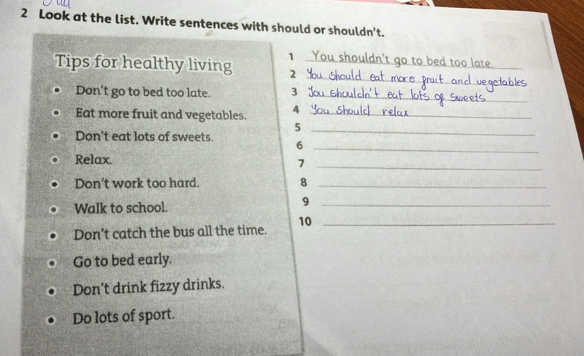 2 Look at the list. Write sentences with should or shouldn't.
Tips for healthy living
• Don't go to bed too late.
• Eat more fruit and vegetables.
• Don't eat lots of sweets.
• Relax.
• Don't work too hard.
• Walk to school.
• Don't catch the bus all the time.
• Go to bed early.
• Don't drink fizzy drinks.
• Do lots of sport.
1 You shouldn't go to bed too late.
2 You should eat more fruit and vegetables
3 You shouldn't eat lots of sweets
4 You should relax
5
6
7
8
9
10